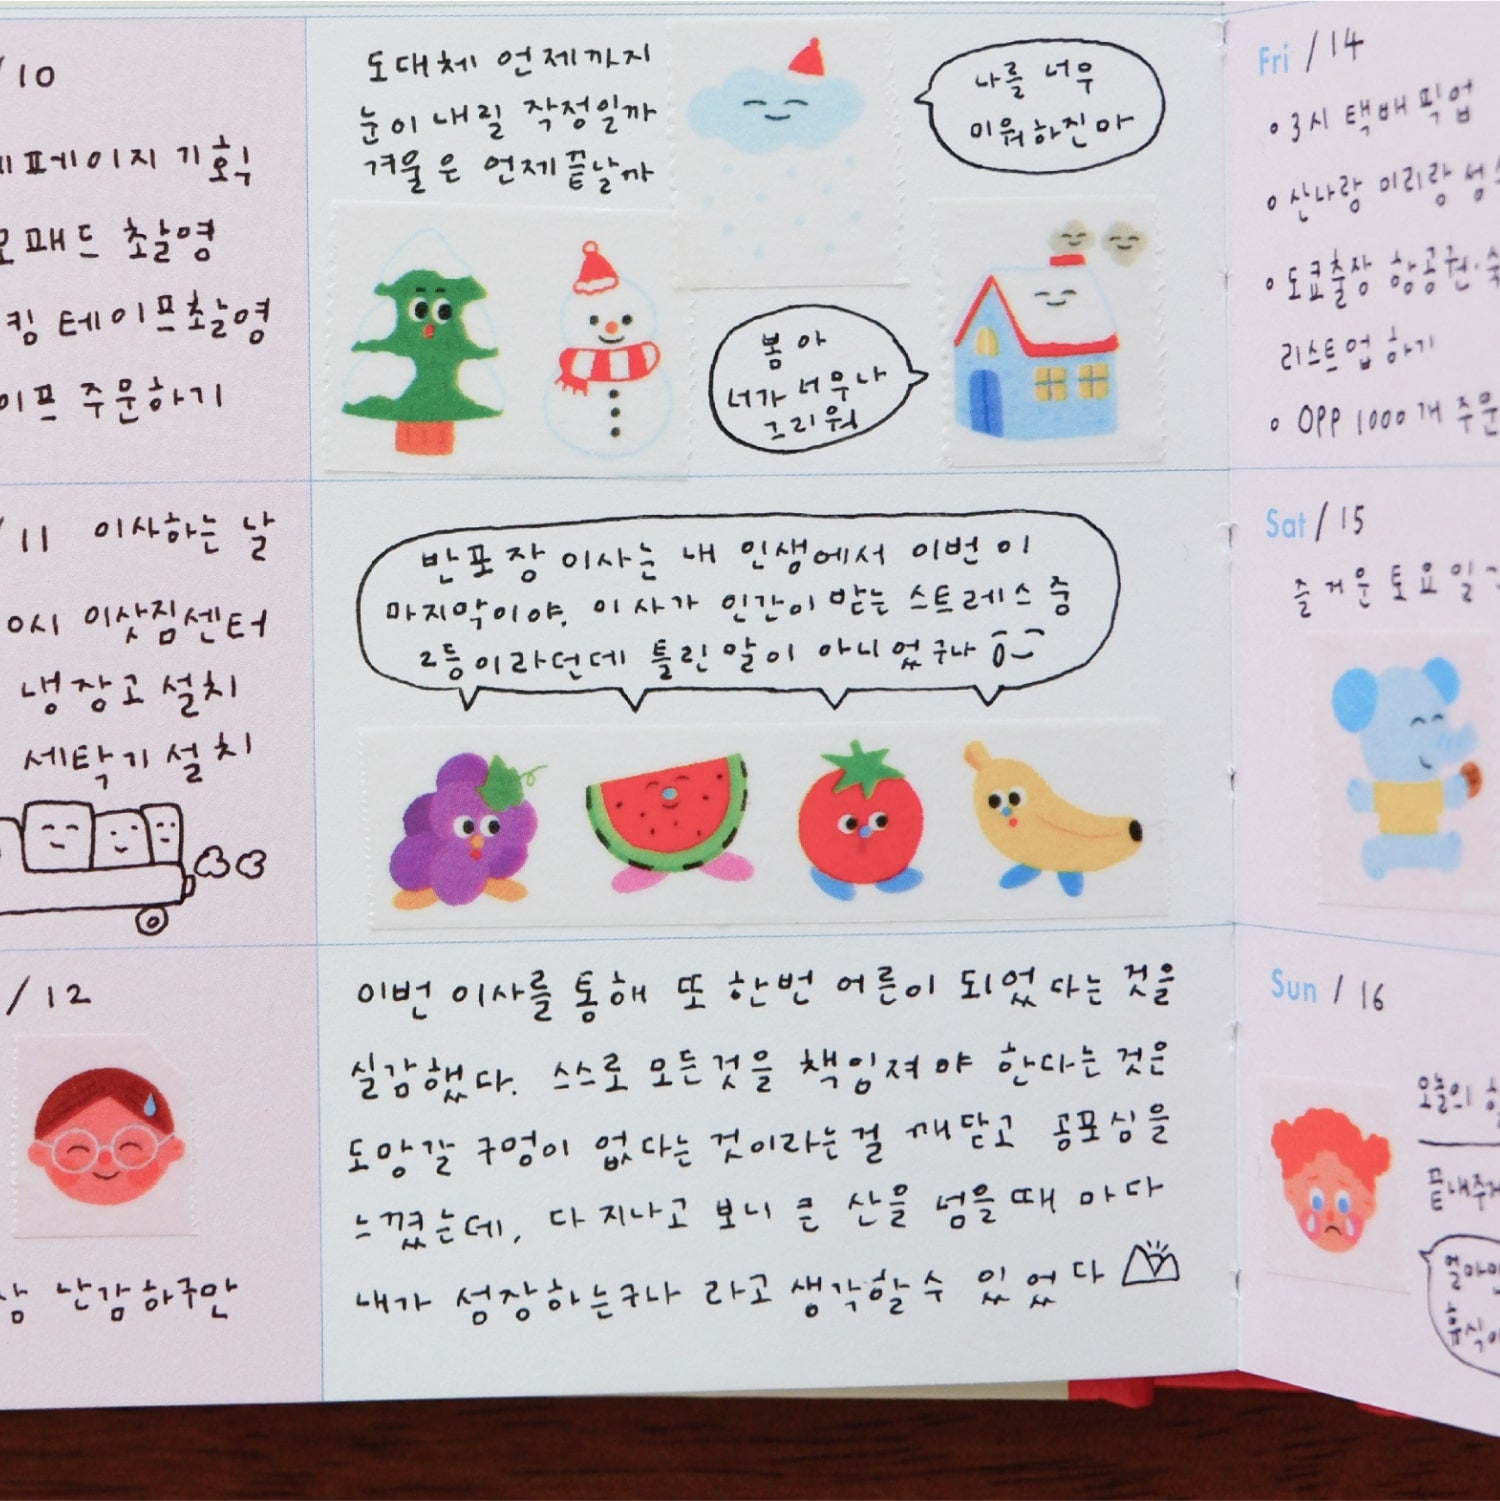 /10
페이지 기획
패드 촬영
킹 테이프촬영
이프 주문하기
도대체 언제까지
눈이 내릴 작정일까
겨울은 언제끝날까
나를 너무
미워하진마
봄아
너가 너무나
그리워
/11 이사하는 날
0시 이삿짐센터
냉장고 설치
세탁기 설치
반포장 이사는 내 인생에서 이번이
마지막이야. 이사가 인간이 받는 스트레스 중
2등이라던데 틀린말이 아니었구나
/12
난감하구만
이번 이사를 통해 또 한번 어른이 되었다는 것을
실감했다. 스스로 모든것을 책임져야 한다는 것은
도망갈 구멍이 없다는 것이라는걸 깨닫고 공포심을
느꼈는데, 다 지나고 보니 큰 산을 넘을때 마다
내가 성장하는구나 라고 생각할수 있었다
Fri / 14
3시 택배 픽업
산나랑 미리랑
도쿄출장 항공권·숙
리스트업 하기
OPP 1000개 주문
Sat / 15
즐거운 토요일
Sun / 16
오늘의
끝내주게